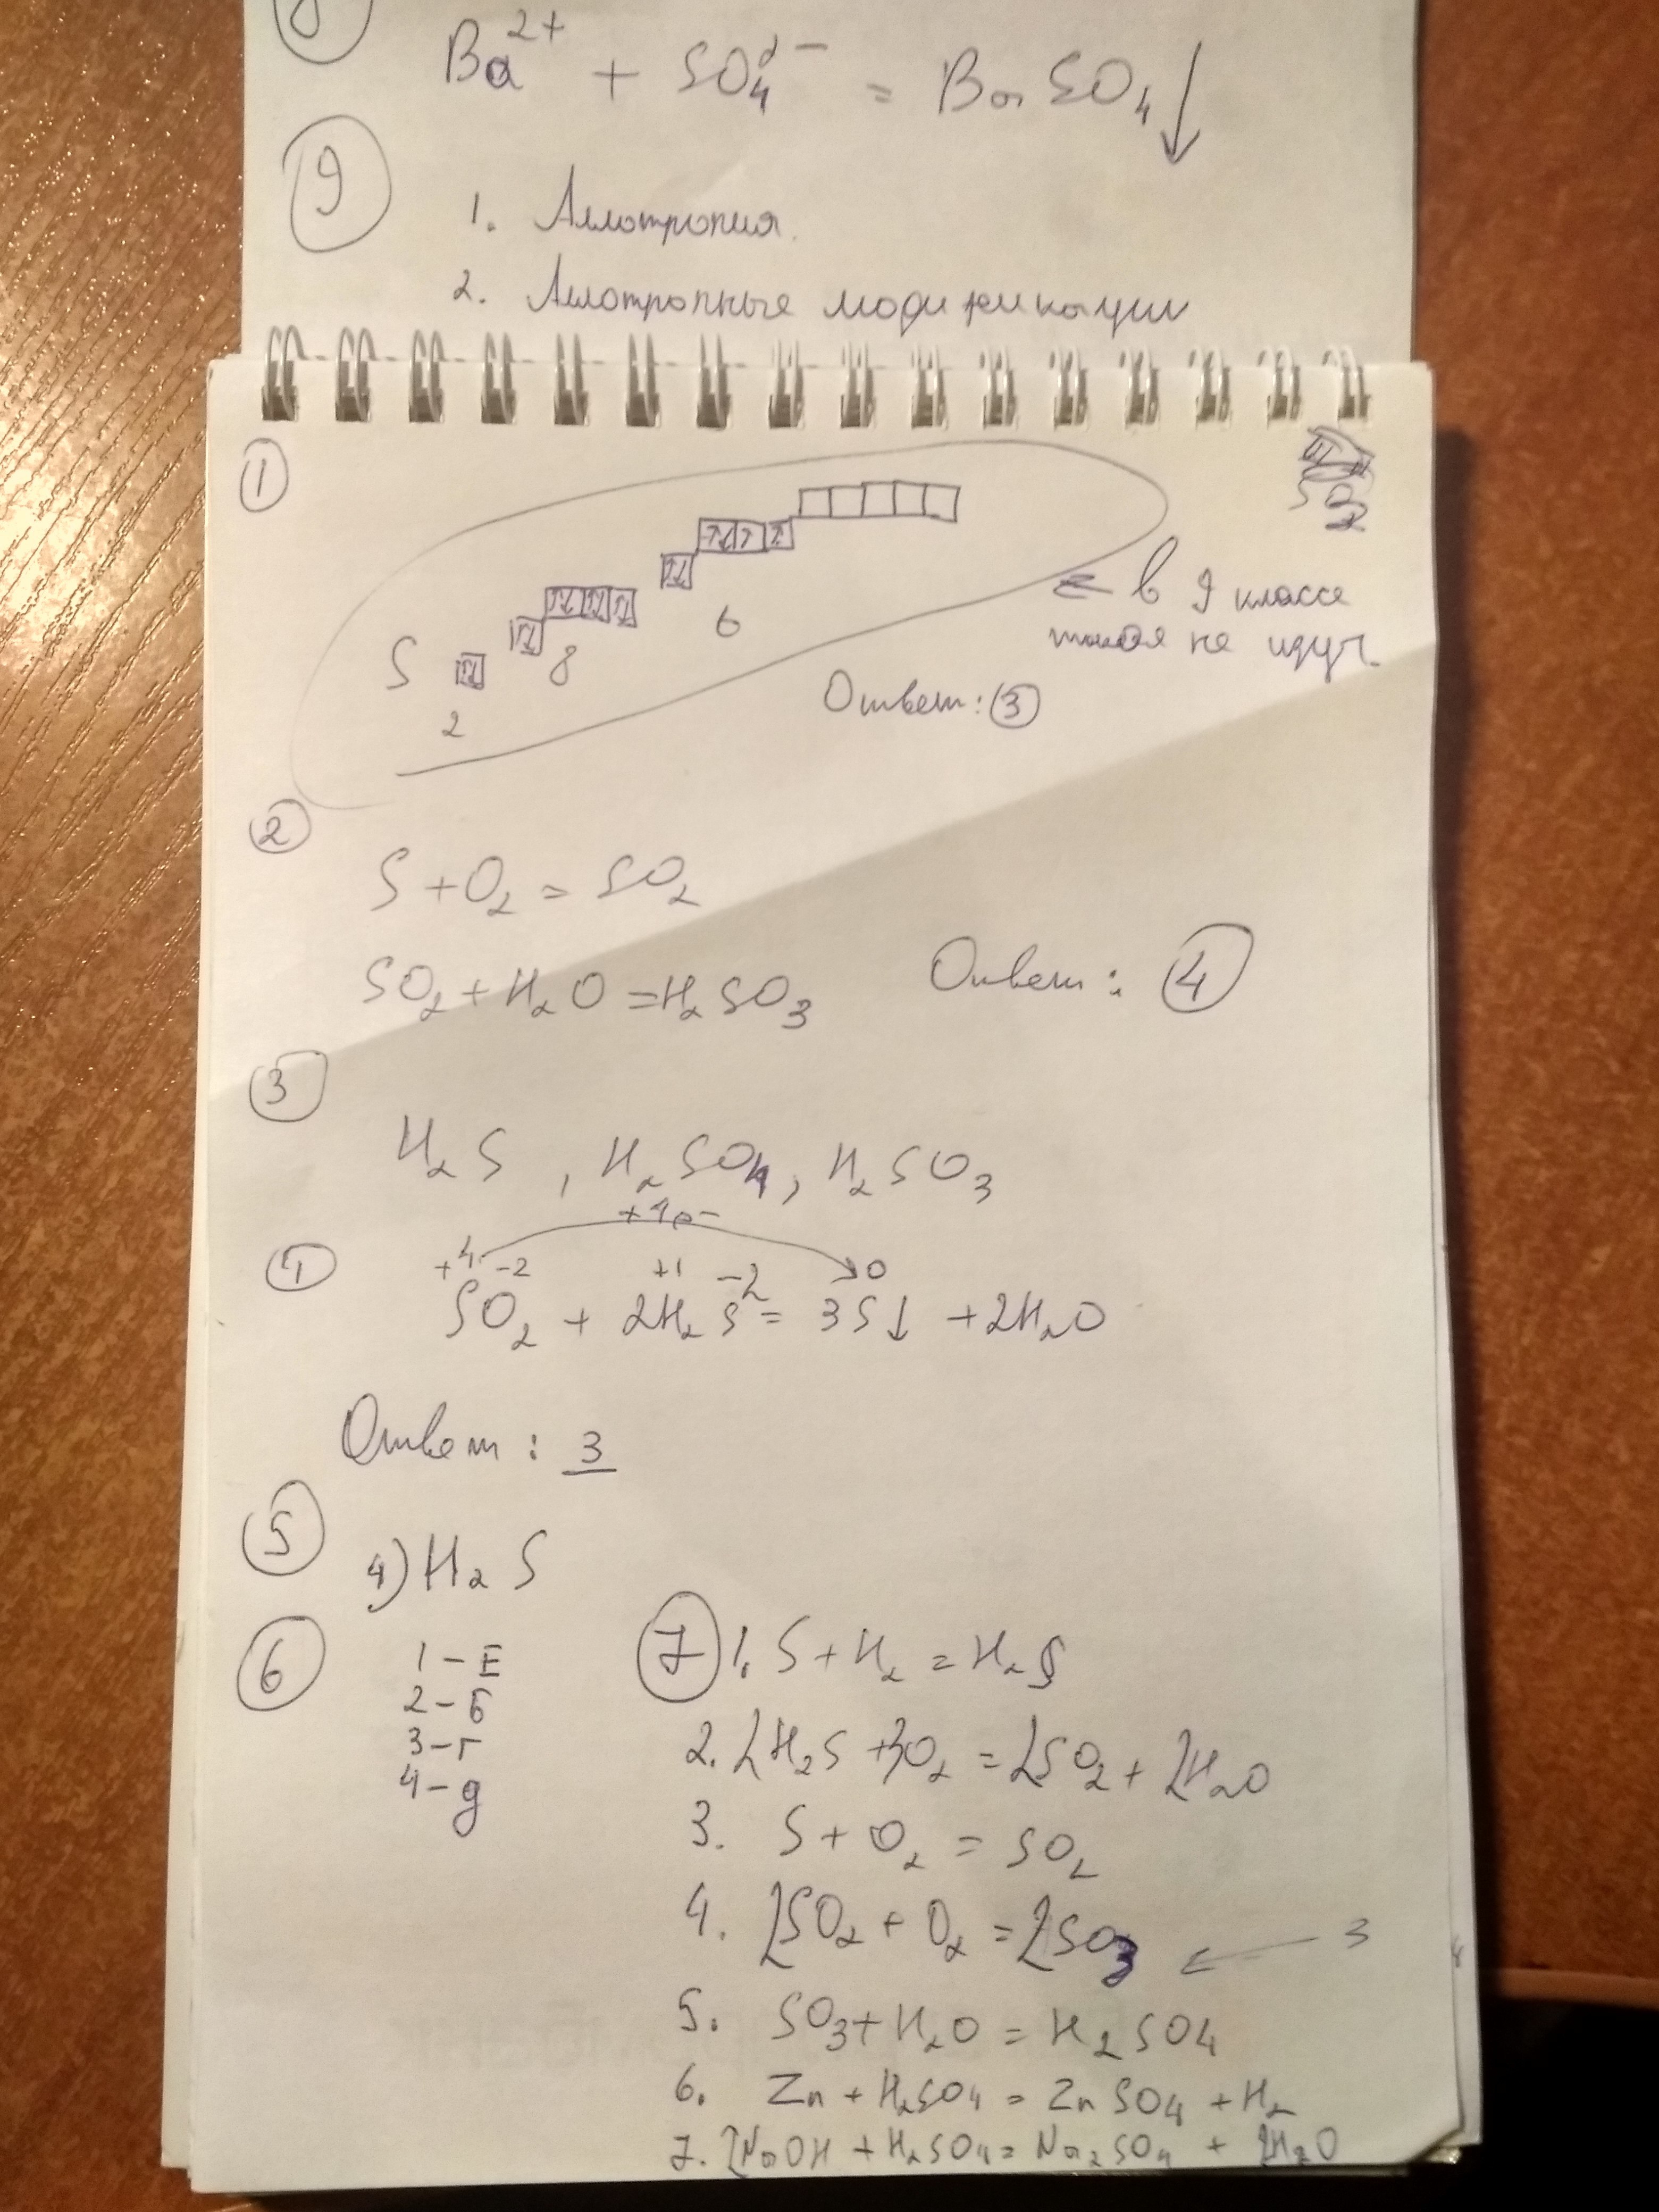 8
Ba²⁺ + SO₄²⁻ = BaSO₄↓
9
1. Аллотропия.
2. Аллотропные модификации
1
S
2
8
6
← в 9 классе
такое не идут.
Ответ: 3
2
S + O₂ = SO₂
SO₂ + H₂O = H₂SO₃
Ответ: 4
3
H₂S, H₂SO₄, H₂SO₃
4
+4e-
+4 -2 +1 -2 0
SO₂ + 2H₂S = 3S↓ + 2H₂O
Ответ: 3
5
4) H₂S
6
1 - Е
2 - Б
3 - г
4 - g
7
1. S + H₂ = H₂S
2. 2H₂S + 3O₂ = 2SO₂ + 2H₂O
3. S + O₂ = SO₂
4. 2SO₂ + O₂ = 2SO₃ ← 3
5. SO₃ + H₂O = H₂SO4
6. Zn + H₂SO₄ = ZnSO₄ + H₂
7. 2NaOH + H₂SO₄ = Na₂SO₄ + 2H₂O